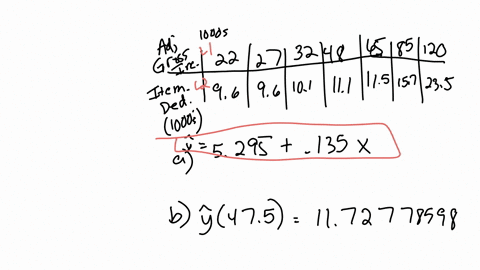 1000s
Adj. Gross Inc. L1 22 27 32 48 65 85 120
Item. Ded. (1000s) L2 9.6 9.6 10.1 11.1 11.5 15.7 23.5
a) ŷ = 5.295 + .135 x
b) ŷ(47.5) = 11.72778598